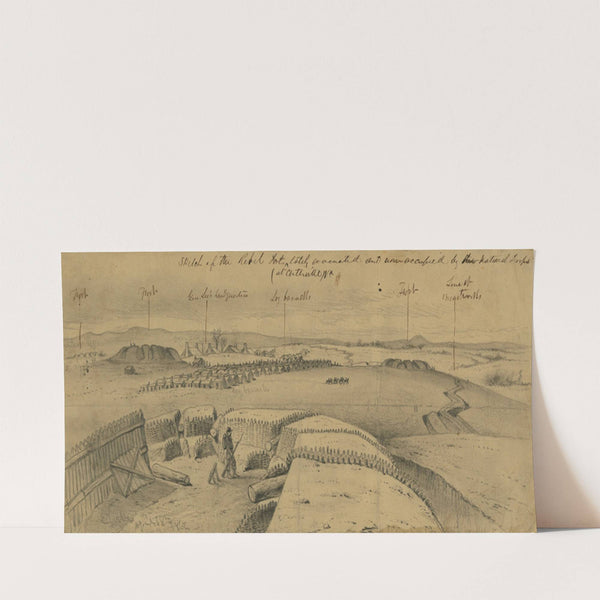 Sketch of the Rebel Fort, lately evacuated and now occupied by the national Troops
(at Centreville, Va
Fort
Fort
Gen Lee's headquarters
Log barracks
Fort
Line of
breastworks